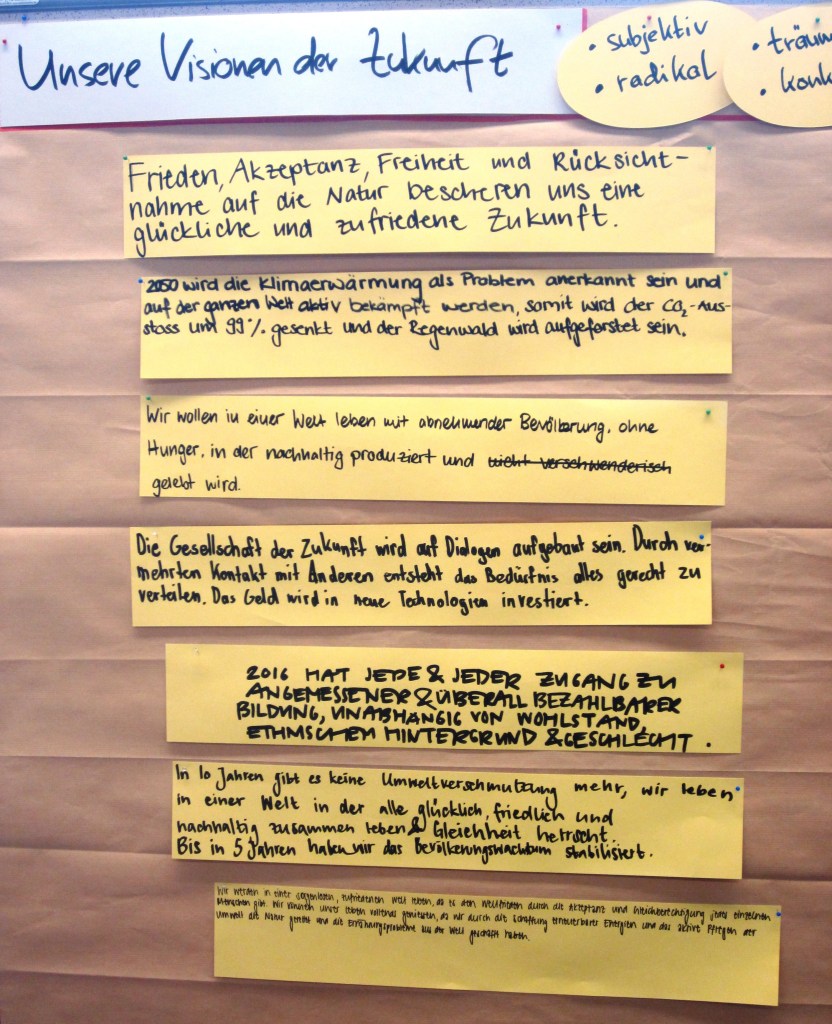 Unsere Visionen der Zukunft
• subjektiv
• radikal
• träum
• konk
Frieden, Akzeptanz, Freiheit und Rücksicht-
nahme auf die Natur bescheren uns eine
glückliche und zufriedene Zukunft.
2050 wird die Klimaerwärmung als Problem anerkannt sein und
auf der ganzen Welt aktiv bekämpft werden, somit wird der CO₂-Aus-
stoss um 99% gesenkt und der Regenwald wird aufgeforstet sein.
Wir wollen in einer Welt leben mit abnehmender Bevölkerung, ohne
Hunger, in der nachhaltig produziert und nicht verschwenderisch
gelebt wird.
Die Gesellschaft der Zukunft wird auf Dialogen aufgebaut sein. Durch ver-
mehrten Kontakt mit Anderen entsteht das Bedürfnis alles gerecht zu
verteilen. Das Geld wird in neue Technologien investiert.
2016 HAT JEDE & JEDER ZUGANG ZU
ANGEMESSENER & ÜBERALL BEZAHLBARER
BILDUNG, UNABHÄNGIG VON WOHLSTAND,
ETHNISCHEM HINTERGRUND & GESCHLECHT.
In 10 Jahren gibt es keine Umweltverschmutzung mehr, wir leben
in einer Welt in der alle glücklich, friedlich und
nachhaltig zusammen leben & Gleichheit herrscht.
Bis in 5 Jahren haben wir das Bevölkerungswachtum stabilisiert.
Wir werden in einer sorgenlosen, zufriedenen Welt leben, da es den Weltfrieden durch die Akzeptanz und Gleichberechtigung jedes einzelnen
Menschen gibt. Wir können unser Leben vollends geniessen, da wir durch die Schaffung erneuerbarer Energien und das aktive Pflegen der
Umwelt die Natur gerettet und die Ernährungsprobleme aus der Welt geschafft haben.